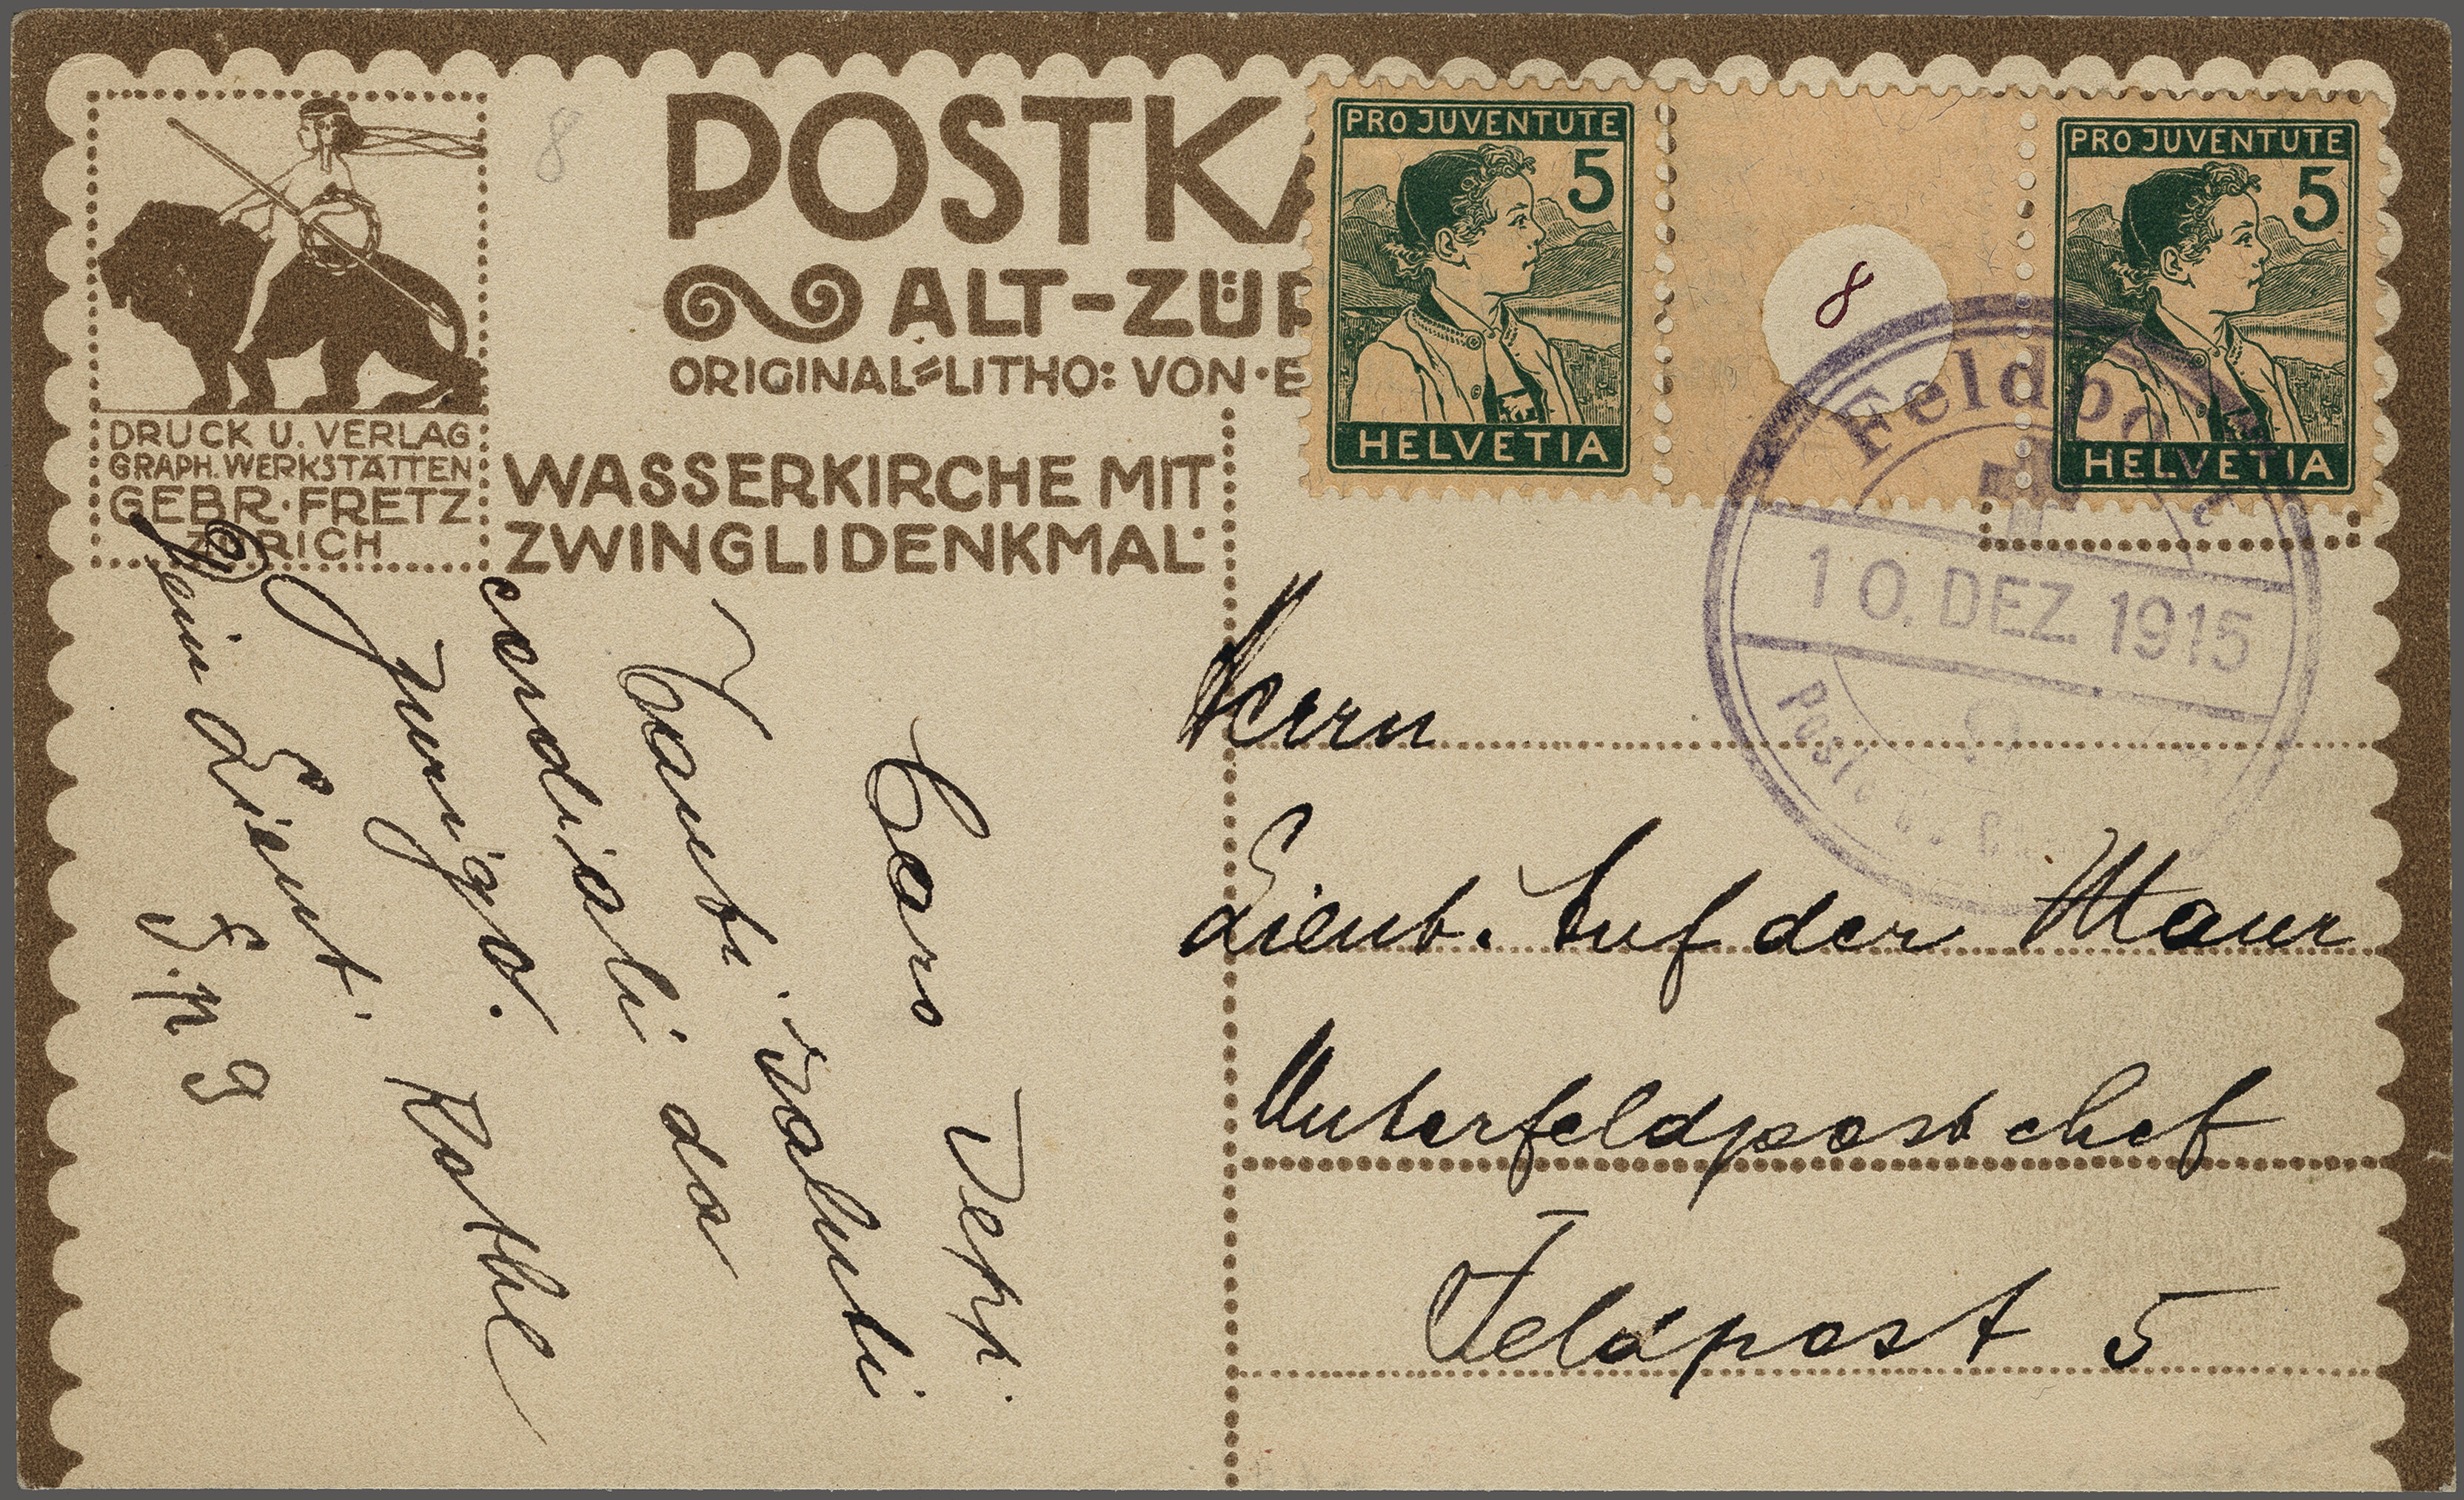 POSTKA
ALT-ZÜR
ORIGINAL=LITHO: VON·E
DRUCK U. VERLAG
GRAPH. WERKSTÄTTEN
GEBR·FRETZ
ZÜRICH
WASSERKIRCHE MIT
ZWINGLIDENKMAL
8
PRO JUVENTUTE
5
HELVETIA
8
PRO JUVENTUTE
5
HELVETIA
Feldpo
10. DEZ. 1915
Herrn
Lieut. Auf der Maur
Unterfeldpostchef
Feldpost 5
Caro Peppi
Tanti saluti
cordiali da
Zurigo.
Lieut.